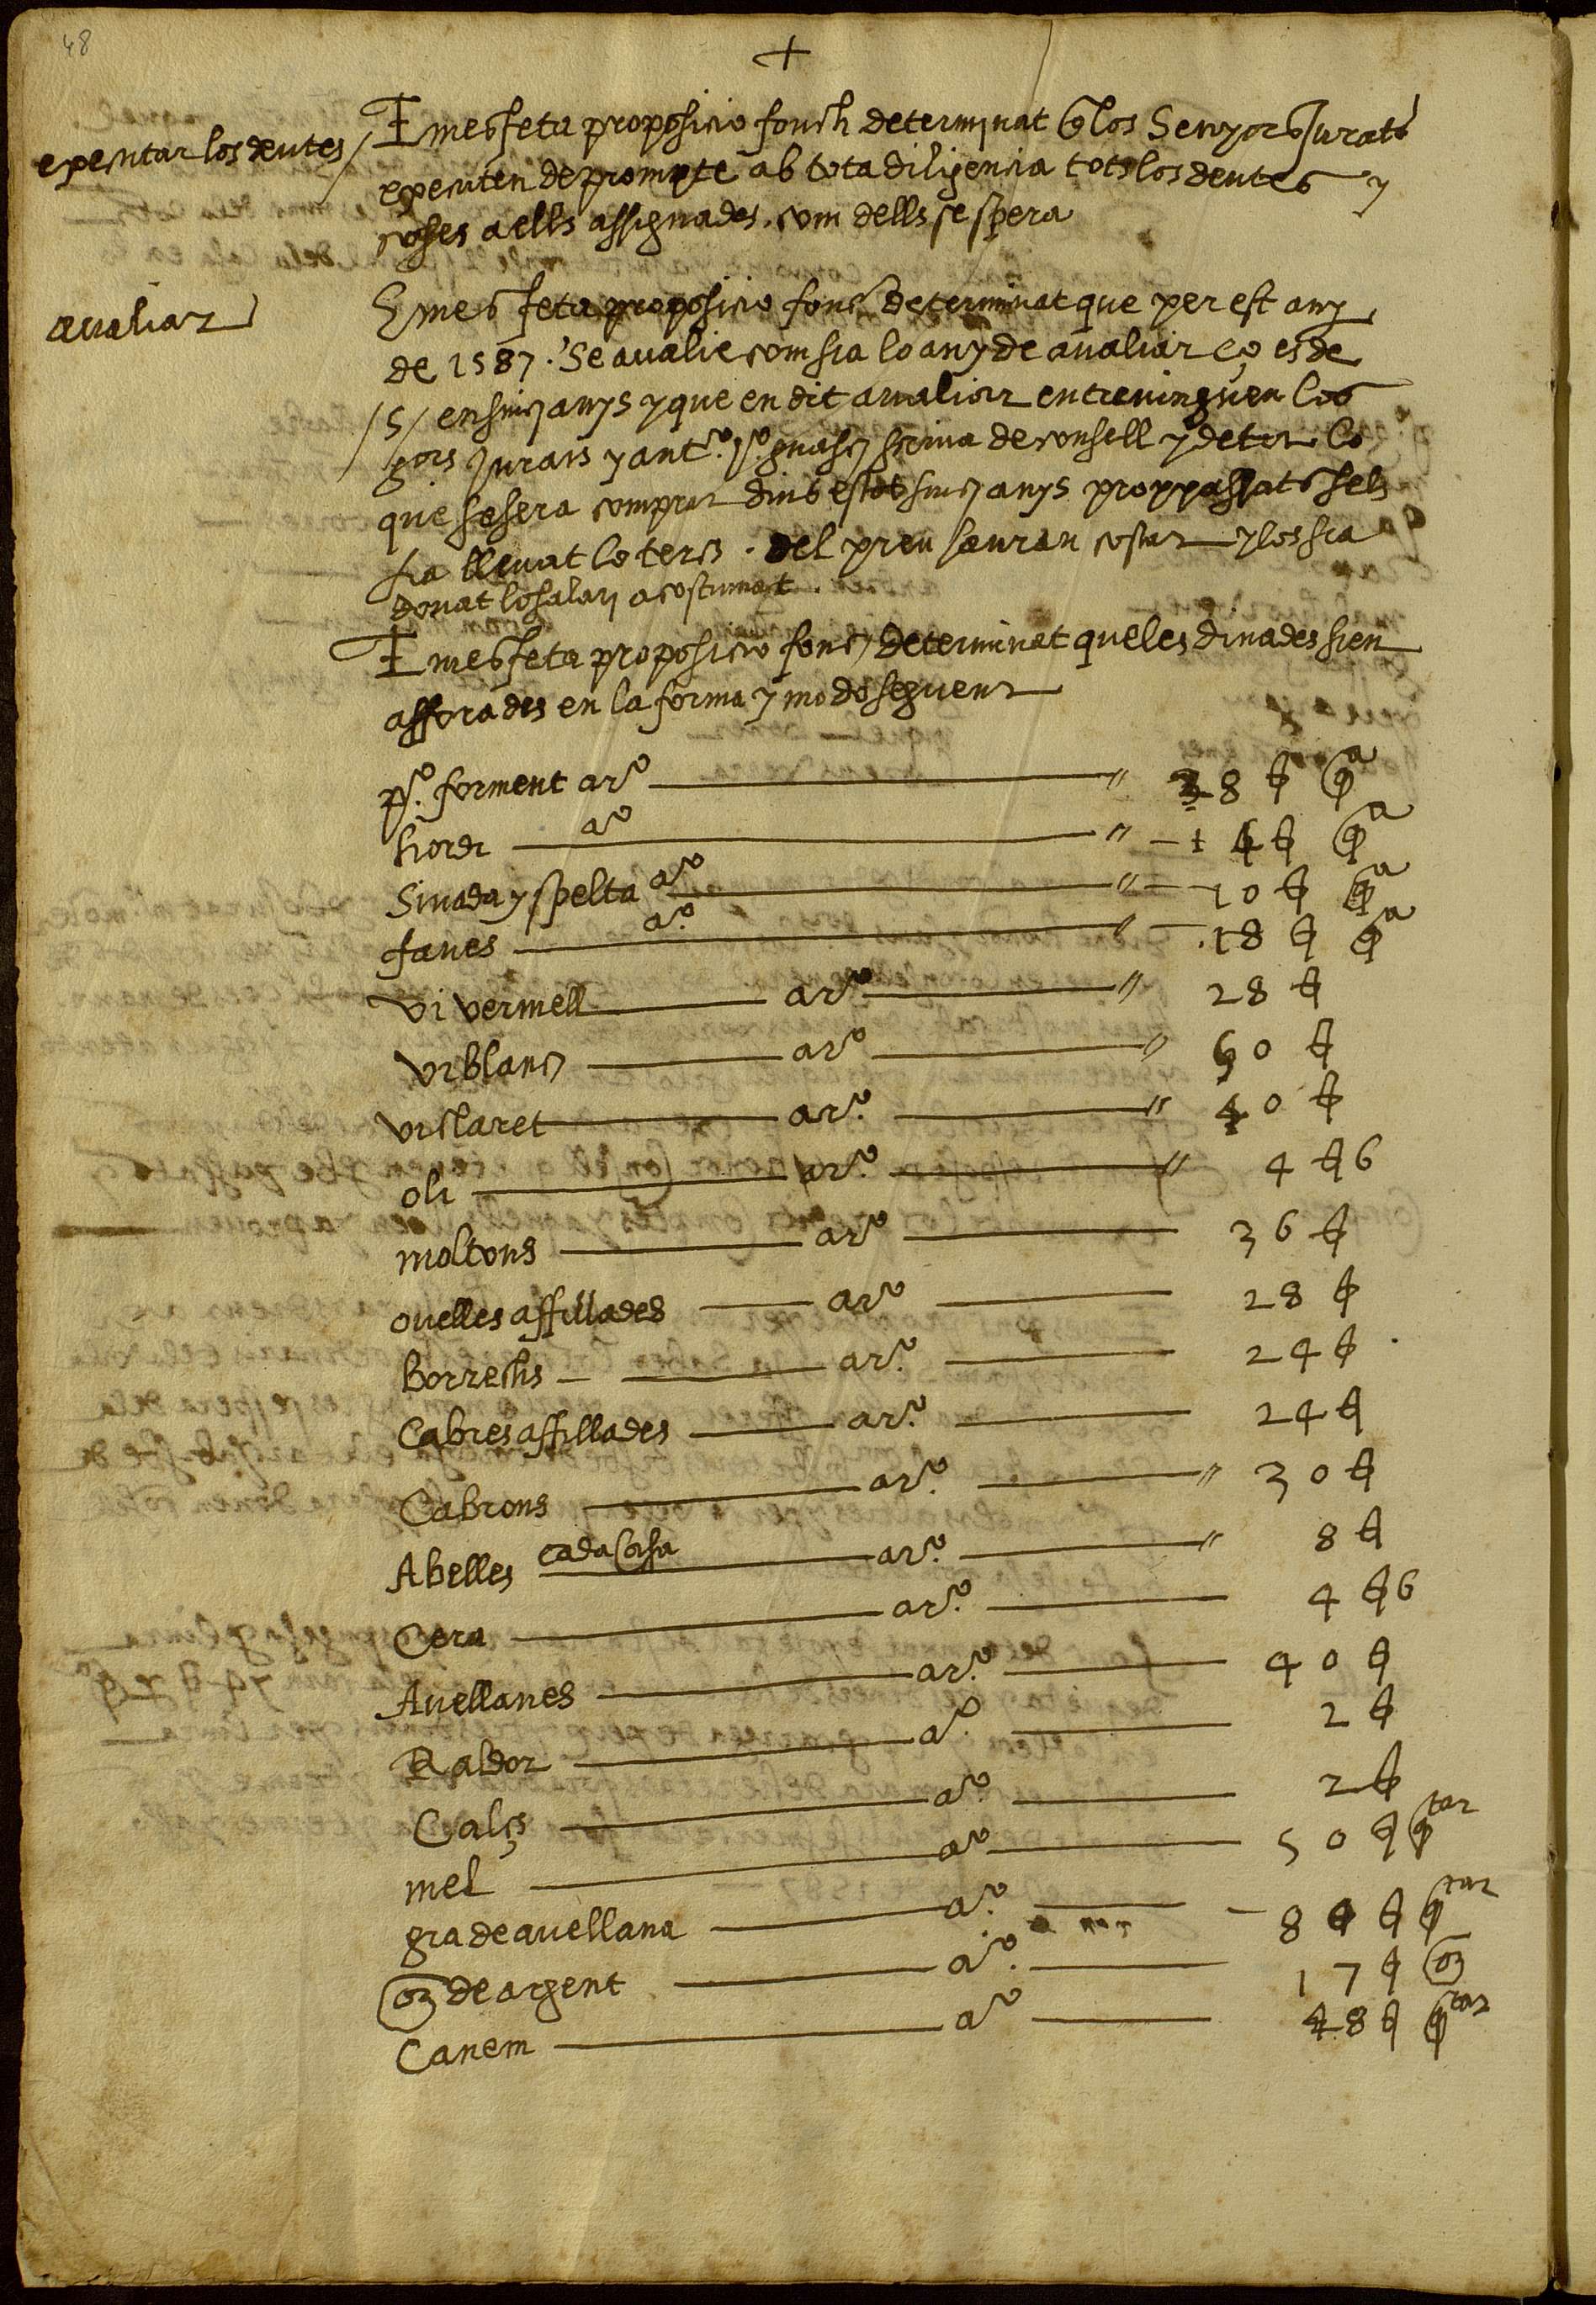 48
+
executar los deutes /
E mes feta proposicio fonch determinat q los Senyors Jurats
executen de prompte ab tota diligencia tots los deutes y
coses a ells assignades. com dells se spera
avaliar
E mes feta proposicio fonc determinat que per est any
de 1587. Se avalie com sia lo any de avaliar ço es de
/5/ en sinch anys y que en dit avaliar entrevinguen los
Sors Jurats y antº. Jº. scriva de consell y de tot lo
que se sera comprat dins estos sinch anys proppassats sels
sia llevat lo ters. del preu hauran costat y los sia
donat lo salari acostumat.
E mes feta proposicio fonch determinat que les dinades sien
afforades en la forma y modo seguent
pº. forment arº 28 ß qª
hordi aº 14 ß qª
Sivada y spelta aº 10 ß qª
faves aº. 18 ß qª
vi vermell arº 28 ß
vi blanch arº 60 ß
vi claret arº. 40 ß
oli arº. 4 ß 6
moltons arº 36 ß
ovelles affillades arº 28 ß
Borrechs arº. 24 ß
Cabres affillades arº. 24 ß
Cabrons arº. 30 ß
Abelles cada casa arº. 8 ß
Cera arº. 4 ß 6
Avellanes arº. 40 ß
Raldor aº. 2 ß
Calç aº. 2 ß
mel aº 50 ß qtar
gra de avellana aº. 80 ß qtar
oz de argent aº. 17 ß oz
Canem aº 48 ß qtar